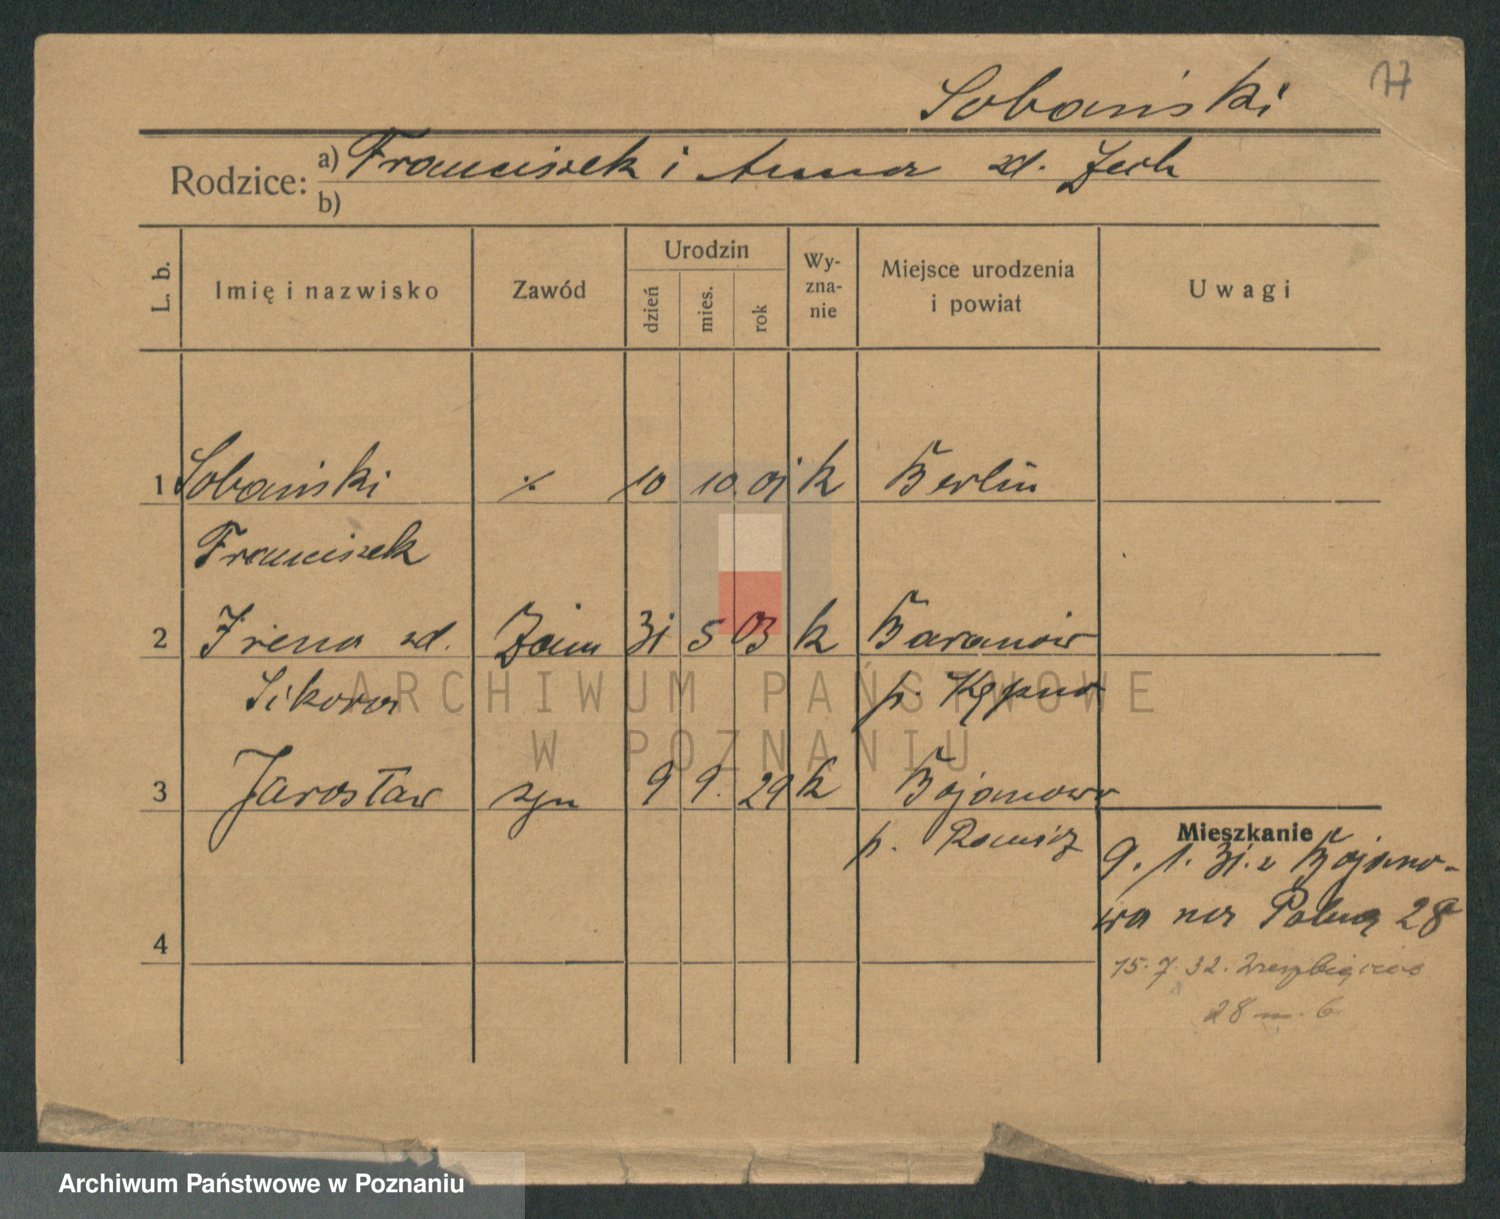 77
Sobański
Rodzice: a) Franciszek i Anna zd. Zech
b)
L. b. Imię i nazwisko Zawód Urodzin dzień mies. rok Wyznanie Miejsce urodzenia i powiat Uwagi
1 Sobański ./. 10 10. 01 k Berlin
Franciszek
2 Irena zd. żona 31 5 03 k Baranów
Sikora p. Kępno
3 Jarosław syn 9 9. 29 k Bojanowo
p. Rawicz
Mieszkanie
9. 1. 31. z Bojano-
wa na Polną 28
4
15. 7. 32.
28 m. 6
ARCHIWUM PAŃSTWOWE
W POZNANIU
Archiwum Państwowe w Poznaniu